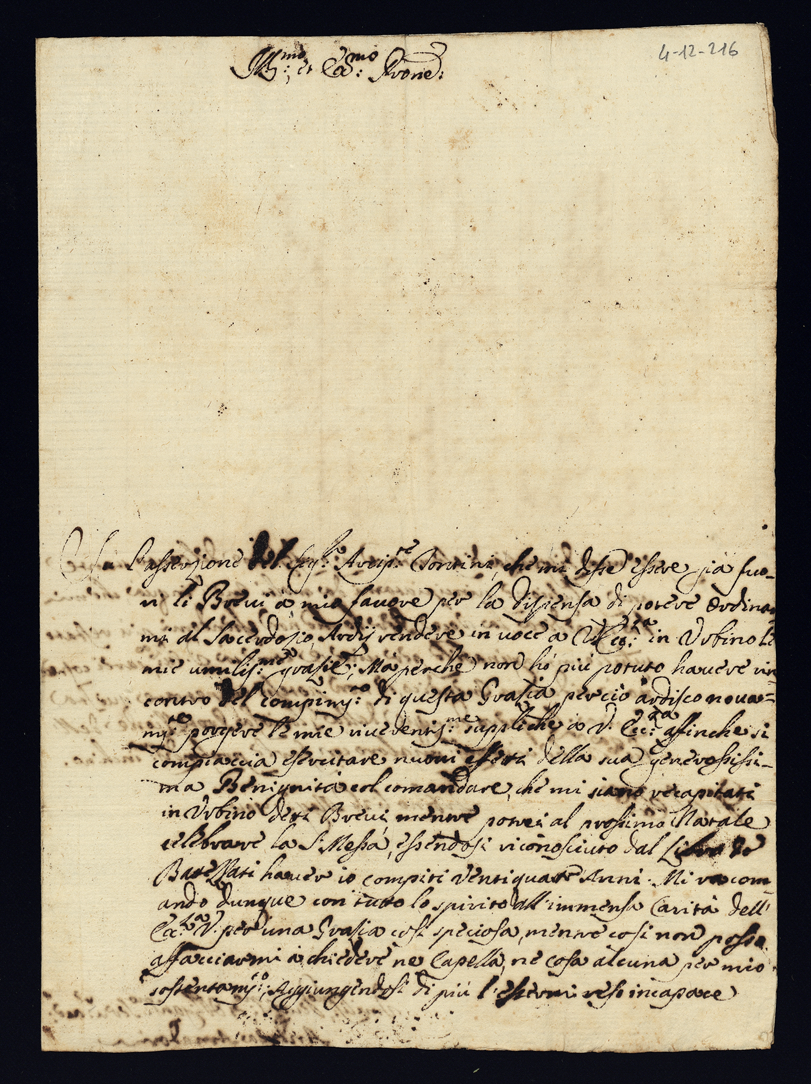 4-12-216
Ill:mo et Ecc:mo Prone:
L'assersione del Arcip:te Contini che mi disse essere già fuo-
ri li Brevi à mio favore per la dispensa di potere ordinar
mi al Sacerdozio, Ardij rendere in voce a V. Ecc:za in Urbino le
mie umilis:me grazie; Mà perche non hò più potuto havere rin
contro del compim:to di questa Grazia perciò ardisco nova-
m:te porgere le mie riverentis:me suppliche a V. Ecc:za affinche si
compiaccia esercitare nuovi effetti della sua generosissi-
ma Benignità col comandare, che mi siano recapitati
in Urbino detti Brevi, mentre potrei al prossimo Natale
celebrare la S. Messa, essendosi riconosciuto dal Libro de
Battezzati haver io compiti ventiquatr Anni. Mi racom
ando dunque con tutto lo spirito all'immensa Carità dell'
Ecc:za V. per una Grazia così speciosa, mentre così non posso
affacciarmi à chiedere ne Capella, ne cosa alcuna per mio
sostentam:to, Aggiungendosi di più l'essermi reso incapace